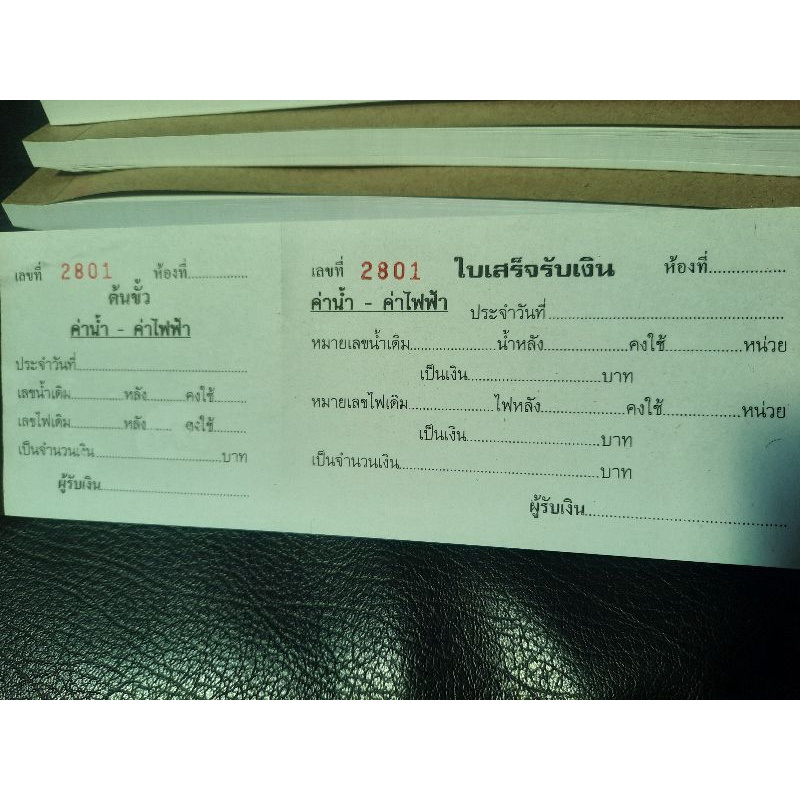 เลขที่ 2801 ห้องที่
ต้นขั้ว
ค่าน้ำ - ค่าไฟฟ้า
ประจำวันที่
เลขน้ำเดิม หลัง คงใช้
เลขไฟเดิม หลัง คงใช้
เป็นจำนวนเงิน บาท
ผู้รับเงิน
เลขที่ 2801 ใบเสร็จรับเงิน ห้องที่
ค่าน้ำ - ค่าไฟฟ้า ประจำวันที่
หมายเลขน้ำเดิม น้ำหลัง คงใช้ หน่วย
เป็นเงิน บาท
หมายเลขไฟเดิม ไฟหลัง คงใช้ หน่วย
เป็นเงิน บาท
เป็นจำนวนเงิน บาท
ผู้รับเงิน